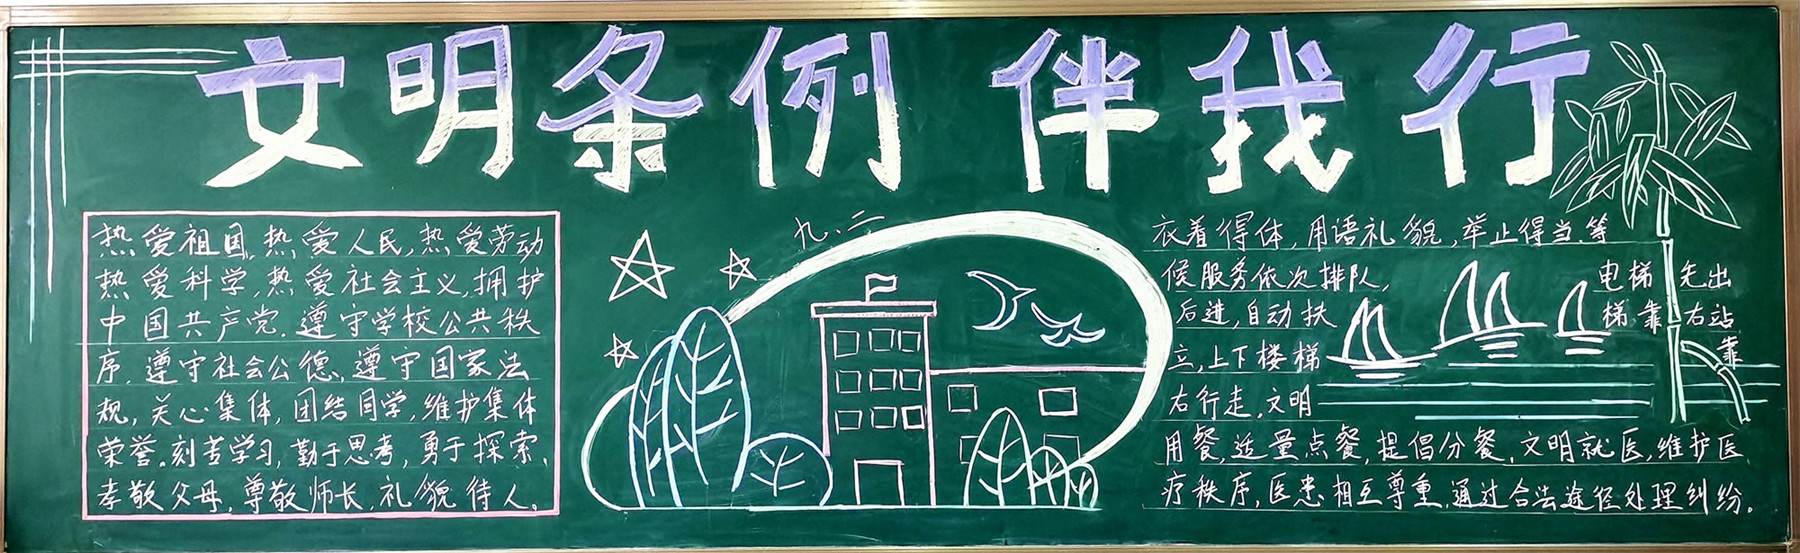 文明条例 伴我行
九.二
热爱祖国,热爱人民,热爱劳动
热爱科学,热爱社会主义,拥护
中国共产党.遵守学校公共秩
序,遵守社会公德,遵守国家法
规,关心集体,团结同学,维护集体
荣誉。刻苦学习,勤于思考,勇于探索、
孝敬父母,尊敬师长,礼貌待人。
衣着得体,用语礼貌,举止得当、等
候服务依次排队,电梯先出
后进,自动扶梯靠右站
立,上下楼梯靠
右行走,文明
用餐,适量点餐,提倡分餐,文明就医,维护医
疗秩序,医患相互尊重,通过合法途径处理纠纷。